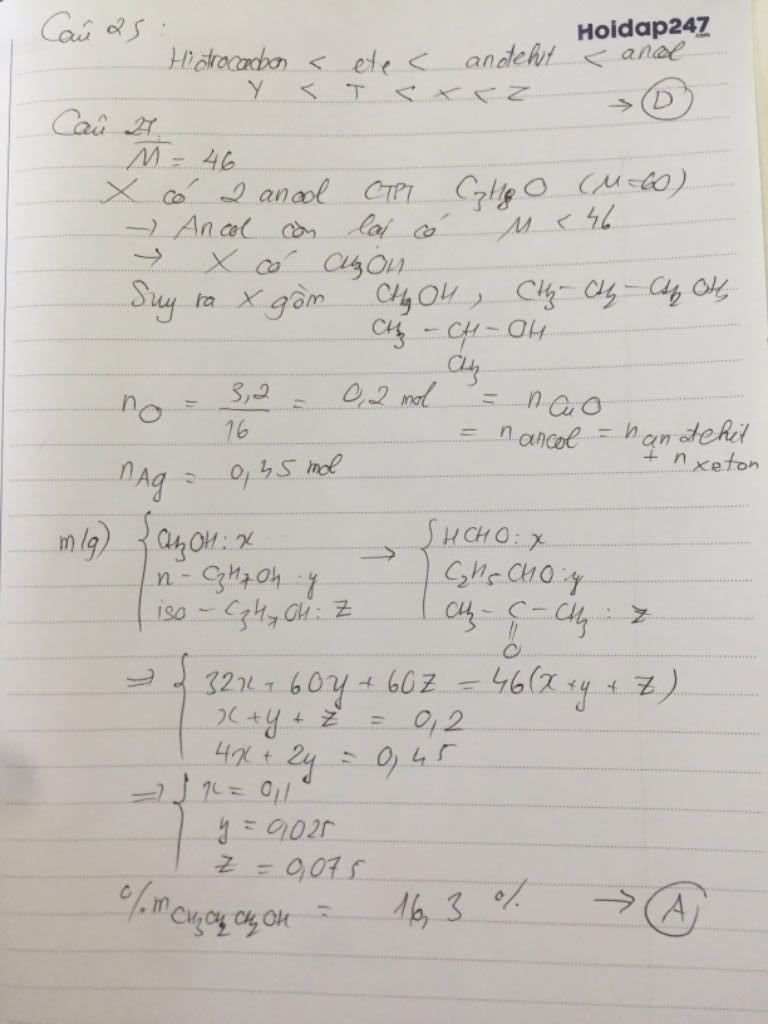 Câu 25:
Hoidap247.com
Hidrocacbon < ete < andehit < ancol
Y < T < X < Z → D
Câu 27.
M̅ = 46
X có 2 ancol CTPT C3H8O (M=60)
→ Ancol còn lại có M < 46
→ X có CH3OH
Suy ra X gồm CH3OH, CH3-CH2-CH2OH,
CH3 - CH - OH
CH3
nO = 3,2/16 = 0,2 mol = nCuO
= nancol = nandehit + nxeton
nAg = 0,45 mol
m(g) { CH3OH: x → { HCHO: x
n - C3H7OH: y C2H5CHO: y
iso - C3H7OH: z CH3 - C - CH3: z
O
=> { 32x + 60y + 60z = 46(x+y+z)
x+y+z = 0,2
4x+2y = 0,45
=> { x = 0,1
y = 0,025
z = 0,075
%mCH3CH2CH2OH = 16,3 % → A